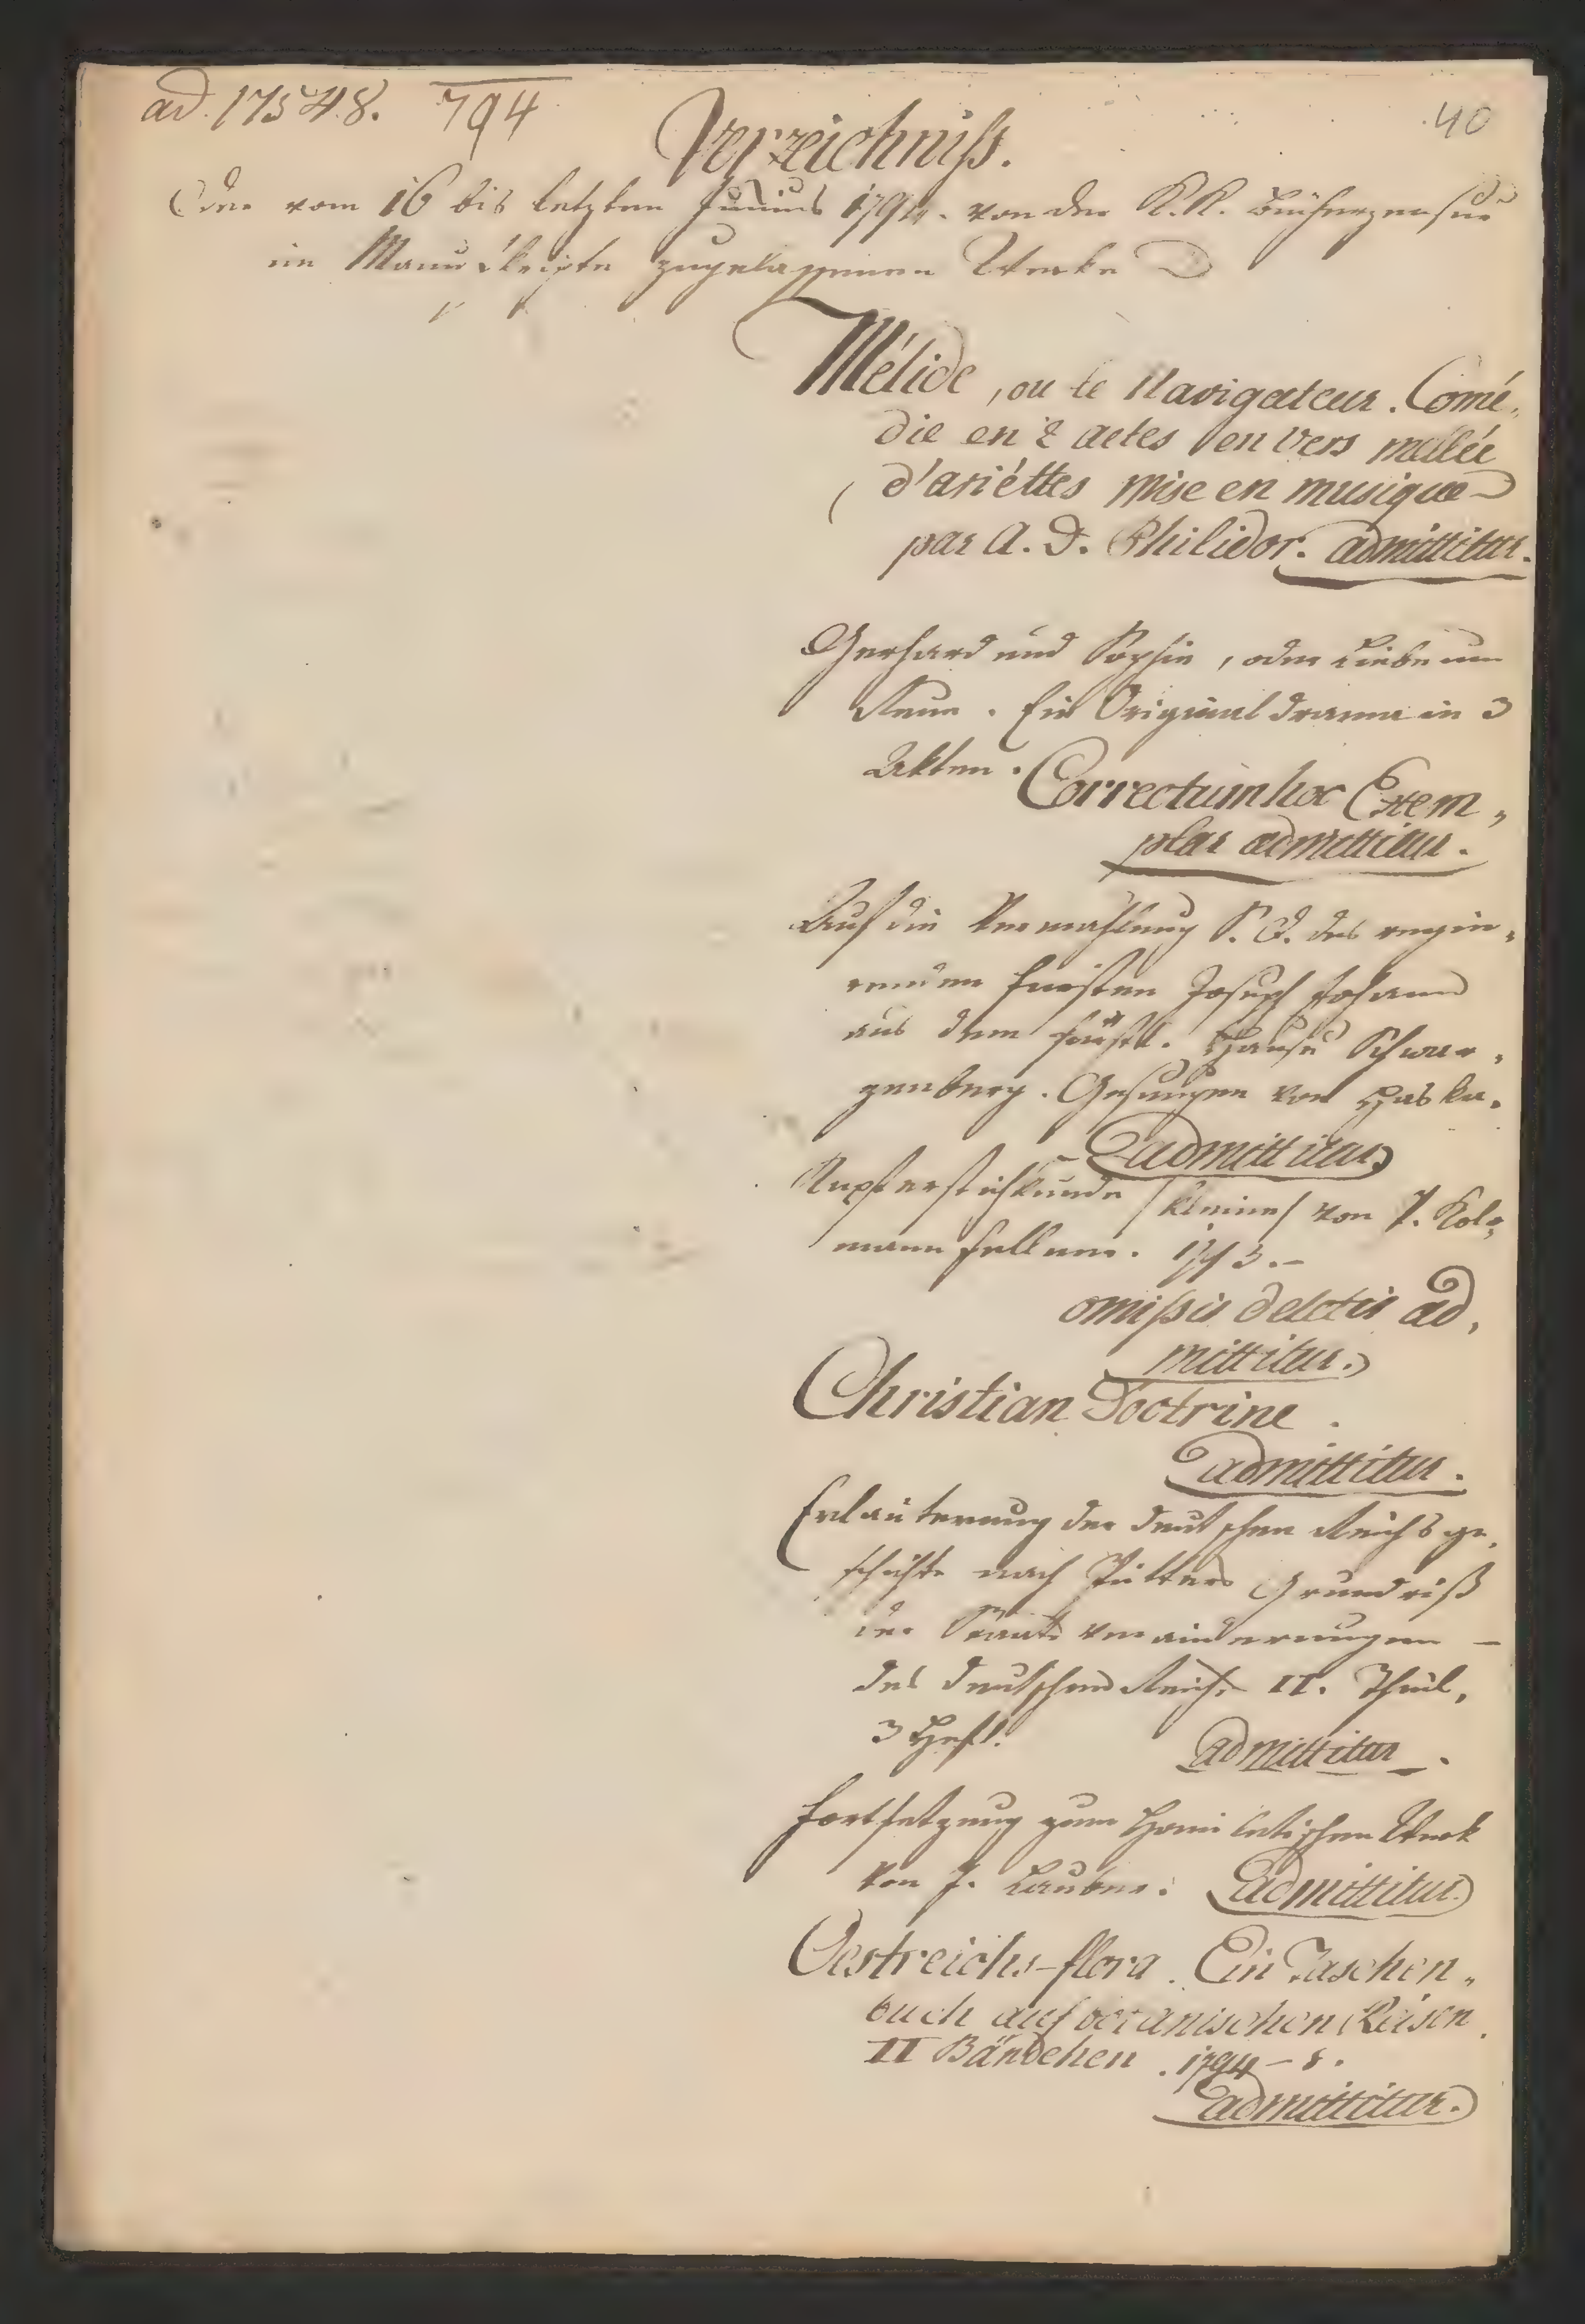 ad. 17548. 794
40
Verzeichniß.
Der vom 16 bis letzten Junius 1794. von der K.K. Bücherzensur
im Manuskripte zugelassenen Werke
Mélide, ou le Navigateur. Comé„
die en 2 actes en vers mellée
d'ariéttes mise en musique
par A. D. Philidor. admittitur.
Gerhard und Sophie, oder Liebe um
Reue. Ein Original drama in 3
Akten. Correctum hoc Exem„
plar admittitur.
Auf die Vermahlung S. D. des regie„
renden Fürsten Joseph Johann
aus dem fürstl. Hause Schwar„
zenberg. Gesungen von Haska.
admittitur
Kupferstichkunde /kleine/ von J. Kol„
mann Fellner. 1793.–
omißis deletis ad„
mittitur.
Christian Doctrine.
admittitur.
Erläuterung der deutschen Reichsge„
schichte nach Pütters Grundriß
der Staats veränderungen –
des deutschen Reichs II. Theil,
3 Heft. admittitur.
Fortsetzung zum Homiletischen Werk
von J. Lauber. admittitur
Oestreichs-flora. Ein Taschen„
buch auf botanischen Reisen.
II Bändchen. 1794 – 8.
admittitur.